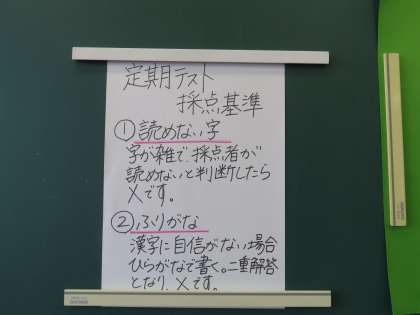 定期テスト
採点基準
①読めない字
字が雑で、採点者が
読めないと判断したら
×です。
②ふりがな
漢字に自信がない場合
ひらがなで書く。二重解答
となり、×です。